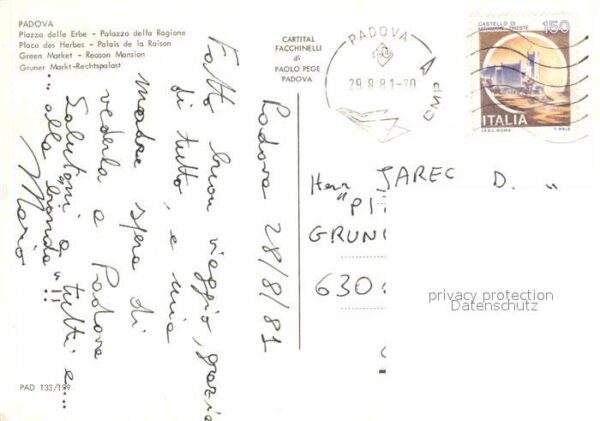 PADOVA
Piazza delle Erbe - Palazzo della Ragione
Place des Herbes - Palais de la Raison
Green Market - Reason Mansion
Gruner Markt-Rechtspalast
CARTITAL
FACCHINELLI
di
PAOLO PEGE
PADOVA
PADOVA
CMP
29.8.81-20
CASTELLO DI
MIRAMARE - TRIESTE
150
ITALIA
I.P.Z.S. ROMA
T. MELE
Padova 28/8/81
Fatto buon viaggio, grazie
di tutto, e mia
madre spera di
vederla a Padova
Salutoni a tutti e....
... alla "bionda"!!
Mario
Herr JAREC D. "
"PI
GRUN
630
privacy protection
Datenschutz
PAD 133/199